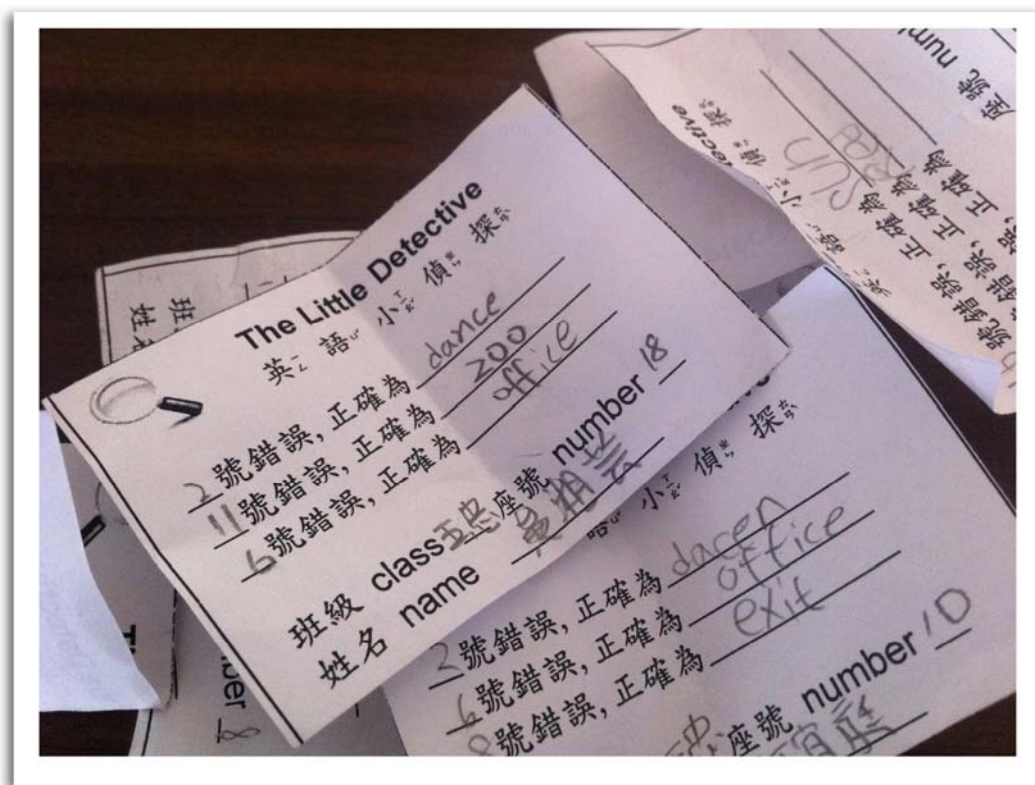 The Little Detective
英語小偵探
2號錯誤, 正確為 dance
11號錯誤, 正確為 200
6號錯誤, 正確為 office
班級 class 五忠 座號 number 18
姓名 name
語小偵探
2號錯誤, 正確為 dacen
6號錯誤, 正確為 office
8號錯誤, 正確為 exit
座號 number 10
座號
小偵探
正確為 sun
號錯誤, 正確為
號錯誤, 正確為
班
姓
8